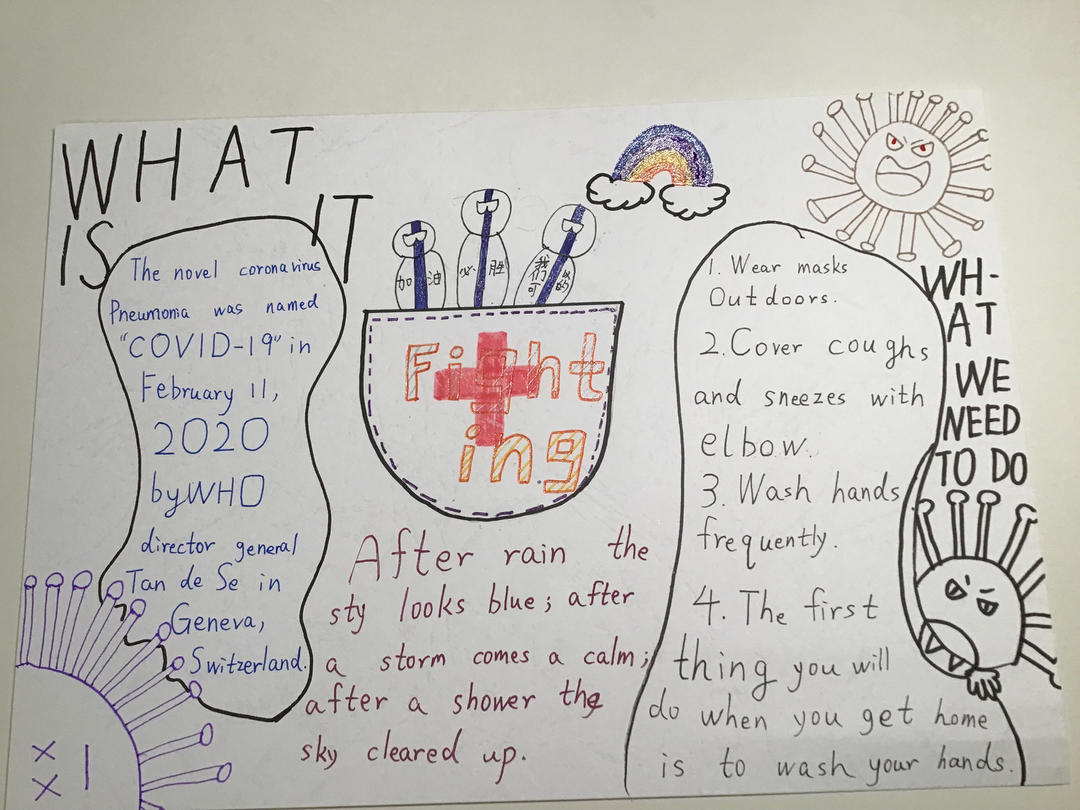 WHAT
IS IT
The novel coronavirus
Pneumonia was named
"COVID-19" in
February 11,
2020
by WHO
director general
Tan de Se in
Geneva,
Switzerland.
加油
必胜
我们可以的
Fight
ing
After rain the
sty looks blue; after
a storm comes a calm;
after a shower the
sky cleared up.
WH-
AT
WE
NEED
TO DO
1. Wear masks
Outdoors.
2. Cover coughs
and sneezes with
elbow.
3. Wash hands
frequently.
4. The first
thing you will
do when you get home
is to wash your hands.